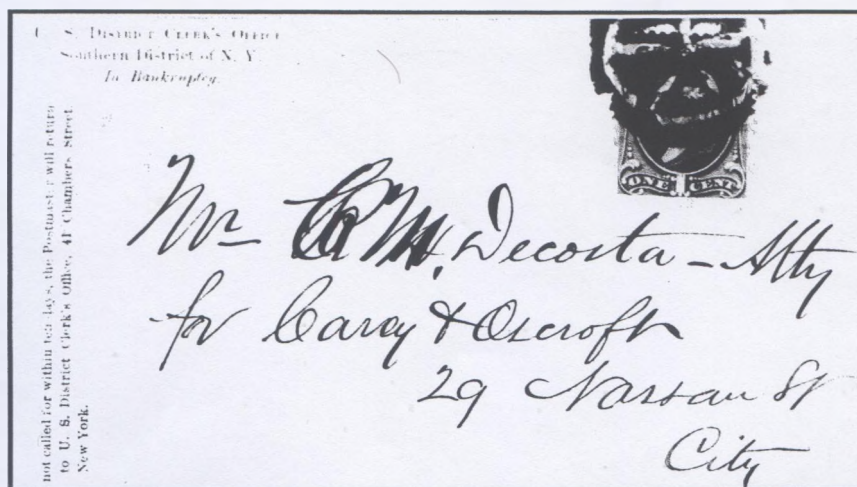 U. S. District Clerk's Office
Southern District of N. Y.
In Bankruptcy.
not called for within ten days, the Postmaster will return
to U. S. District Clerk's Office, 41 Chambers Street
New York.
ONE 1 CENT
Mr M. Decosta - Atty
for Carey & Oscroft
29 Nassau St
City